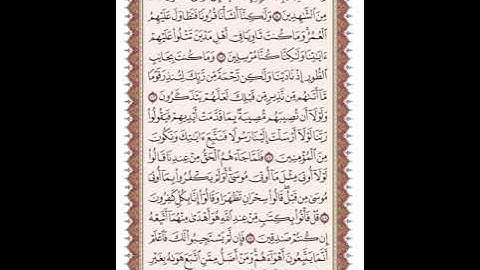 مِنَ ٱلشَّٰهِدِينَ ۝ وَلَٰكِنَّآ أَنشَأْنَا قُرُونًا فَتَطَاوَلَ عَلَيْهِمُ
ٱلْعُمُرُ وَمَا كُنتَ ثَاوِيًا فِىٓ أَهْلِ مَدْيَنَ تَتْلُوا۟ عَلَيْهِمْ
ءَايَٰتِنَا وَلَٰكِنَّا كُنَّا مُرْسِلِينَ ۝ وَمَا كُنتَ بِجَانِبِ
ٱلطُّورِ إِذْ نَادَيْنَا وَلَٰكِن رَّحْمَةً مِّن رَّبِّكَ لِتُنذِرَ قَوْمًا
مَّآ أَتَىٰهُم مِّن نَّذِيرٍ مِّن قَبْلِكَ لَعَلَّهُمْ يَتَذَكَّرُونَ ۝
وَلَوْلَآ أَن تُصِيبَهُم مُّصِيبَةٌۢ بِمَا قَدَّمَتْ أَيْدِيهِمْ فَيَقُولُوا۟
رَبَّنَا لَوْلَآ أَرْسَلْتَ إِلَيْنَا رَسُولًا فَنَتَّبِعَ ءَايَٰتِكَ وَنَكُونَ
مِنَ ٱلْمُؤْمِنِينَ ۝ فَلَمَّا جَآءَهُمُ ٱلْحَقُّ مِنْ عِندِنَا قَالُوا۟
لَوْلَآ أُوتِىَ مِثْلَ مَآ أُوتِىَ مُوسَىٰٓ أَوَلَمْ يَكْفُرُوا۟ بِمَآ أُوتِىَ
مُوسَىٰ مِن قَبْلُ قَالُوا۟ سِحْرَانِ تَظَٰهَرَا وَقَالُوٓا۟ إِنَّا بِكُلٍّ كَٰفِرُونَ
۝ قُلْ فَأْتُوا۟ بِكِتَٰبٍ مِّنْ عِندِ ٱللَّهِ هُوَ أَهْدَىٰ مِنْهُمَآ أَتَّبِعْهُ
إِن كُنتُمْ صَٰدِقِينَ ۝ فَإِن لَّمْ يَسْتَجِيبُوا۟ لَكَ فَٱعْلَمْ
أَنَّمَا يَتَّبِعُونَ أَهْوَآءَهُمْ وَمَنْ أَضَلُّ مِمَّنِ ٱتَّبَعَ هَوَىٰهُ بِغَيْرِ